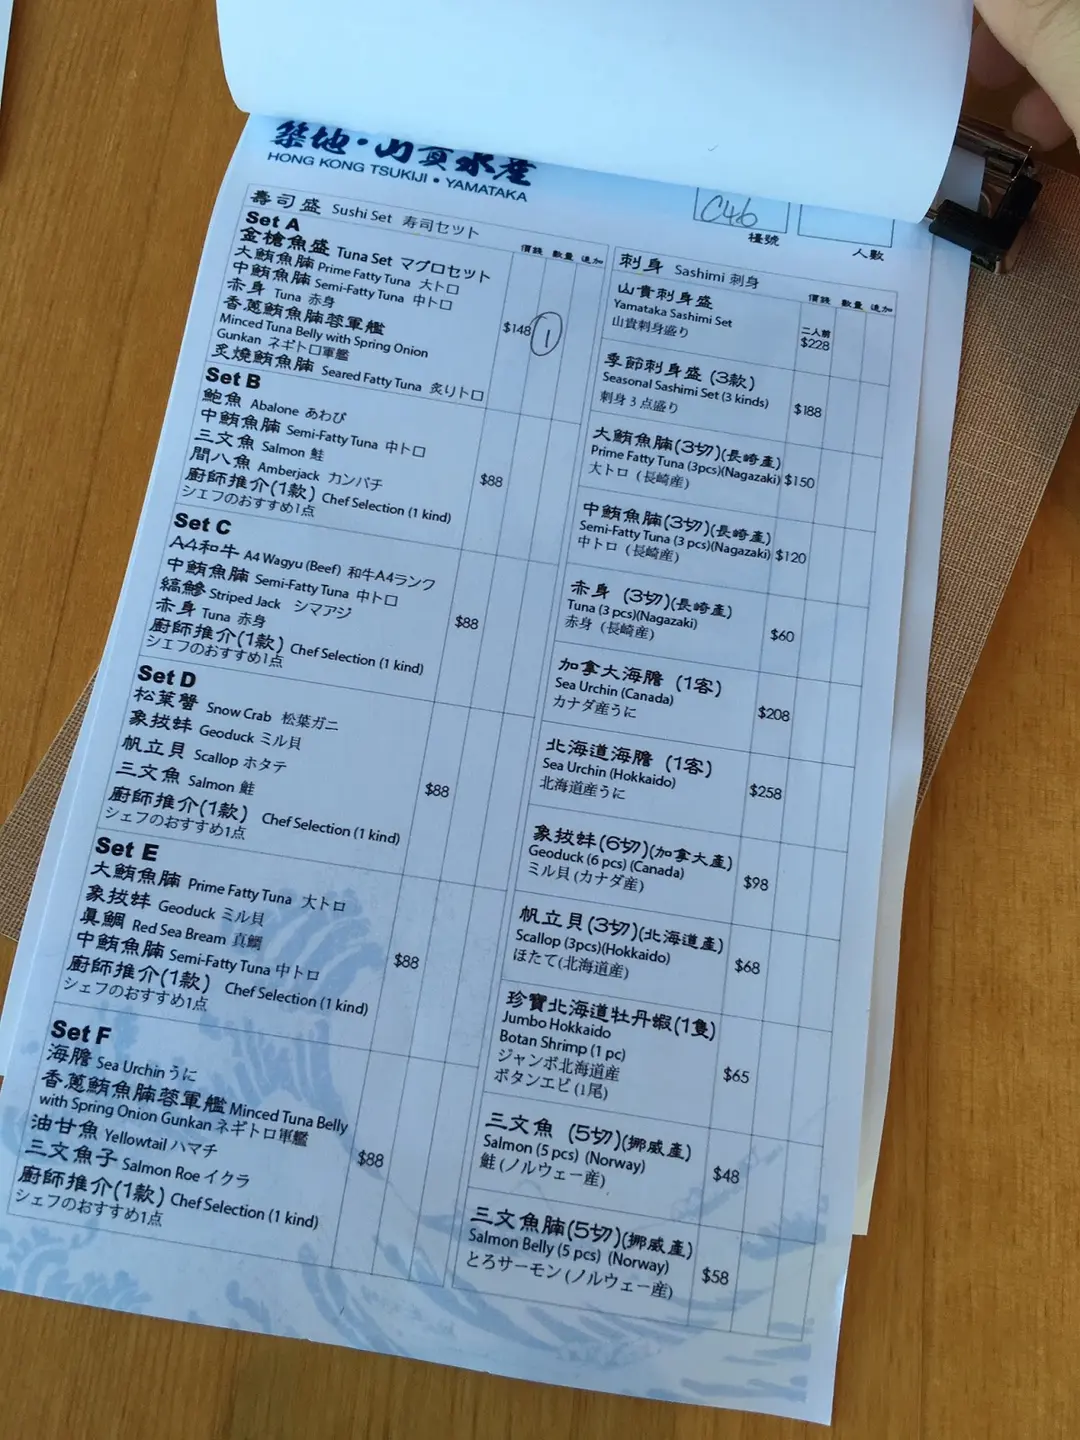 築地・山貴水産
HONG KONG TSUKIJI • YAMATAKA
C46
檯號
人數
壽司盛 Sushi Set 寿司セット
價錢 數量 追加
Set A
金槍魚盛 Tuna Set マグロセット
大鮪魚腩 Prime Fatty Tuna 大トロ
中鮪魚腩 Semi-Fatty Tuna 中トロ
赤身 Tuna 赤身
香蔥鮪魚腩蓉軍艦
Minced Tuna Belly with Spring Onion
Gunkan ネギトロ軍艦
炙燒鮪魚腩 Seared Fatty Tuna 炙りトロ
$148 1
Set B
鮑魚 Abalone あわび
中鮪魚腩 Semi-Fatty Tuna 中トロ
三文魚 Salmon 鮭
間八魚 Amberjack カンパチ
廚師推介(1款) Chef Selection (1 kind)
シェフのおすすめ1点
$88
Set C
A4和牛 A4 Wagyu (Beef) 和牛A4ランク
中鮪魚腩 Semi-Fatty Tuna 中トロ
縞鰺 Striped Jack シマアジ
赤身 Tuna 赤身
廚師推介(1款) Chef Selection (1 kind)
シェフのおすすめ1点
$88
Set D
松葉蟹 Snow Crab 松葉ガニ
象拔蚌 Geoduck ミル貝
帆立貝 Scallop ホタテ
三文魚 Salmon 鮭
廚師推介(1款) Chef Selection (1 kind)
シェフのおすすめ1点
$88
Set E
大鮪魚腩 Prime Fatty Tuna 大トロ
象拔蚌 Geoduck ミル貝
真鯛 Red Sea Bream 真鯛
中鮪魚腩 Semi-Fatty Tuna 中トロ
廚師推介(1款) Chef Selection (1 kind)
シェフのおすすめ1点
$88
Set F
海膽 Sea Urchin うに
香蔥鮪魚腩蓉軍艦 Minced Tuna Belly
with Spring Onion Gunkan ネギトロ軍艦
油甘魚 Yellowtail ハマチ
三文魚子 Salmon Roe イクラ
廚師推介(1款) Chef Selection (1 kind)
シェフのおすすめ1点
$88
刺身 Sashimi 刺身
價錢 數量 追加
山貴刺身盛
Yamataka Sashimi Set
山貴刺身盛り
二人前
$228
季節刺身盛 (3款)
Seasonal Sashimi Set (3 kinds)
刺身３点盛り
$188
大鮪魚腩(3切)(長崎產)
Prime Fatty Tuna (3pcs)(Nagazaki)
大トロ（長崎産）
$150
中鮪魚腩(3切)(長崎產)
Semi-Fatty Tuna (3 pcs)(Nagazaki)
中トロ（長崎産）
$120
赤身 (3切)(長崎產)
Tuna (3 pcs)(Nagazaki)
赤身（長崎産）
$60
加拿大海膽 (1客)
Sea Urchin (Canada)
カナダ産うに
$208
北海道海膽 (1客)
Sea Urchin (Hokkaido)
北海道産うに
$258
象拔蚌(6切)(加拿大產)
Geoduck (6 pcs) (Canada)
ミル貝 (カナダ産)
$98
帆立貝(3切)(北海道產)
Scallop (3pcs)(Hokkaido)
ほたて(北海道産)
$68
珍寶北海道牡丹蝦(1隻)
Jumbo Hokkaido
Botan Shrimp (1 pc)
ジャンボ北海道産
ボタンエビ (1尾)
$65
三文魚 (5切)(挪威產)
Salmon (5 pcs) (Norway)
鮭 (ノルウェー産)
$48
三文魚腩(5切)(挪威產)
Salmon Belly (5 pcs) (Norway)
とろサーモン (ノルウェー産)
$58